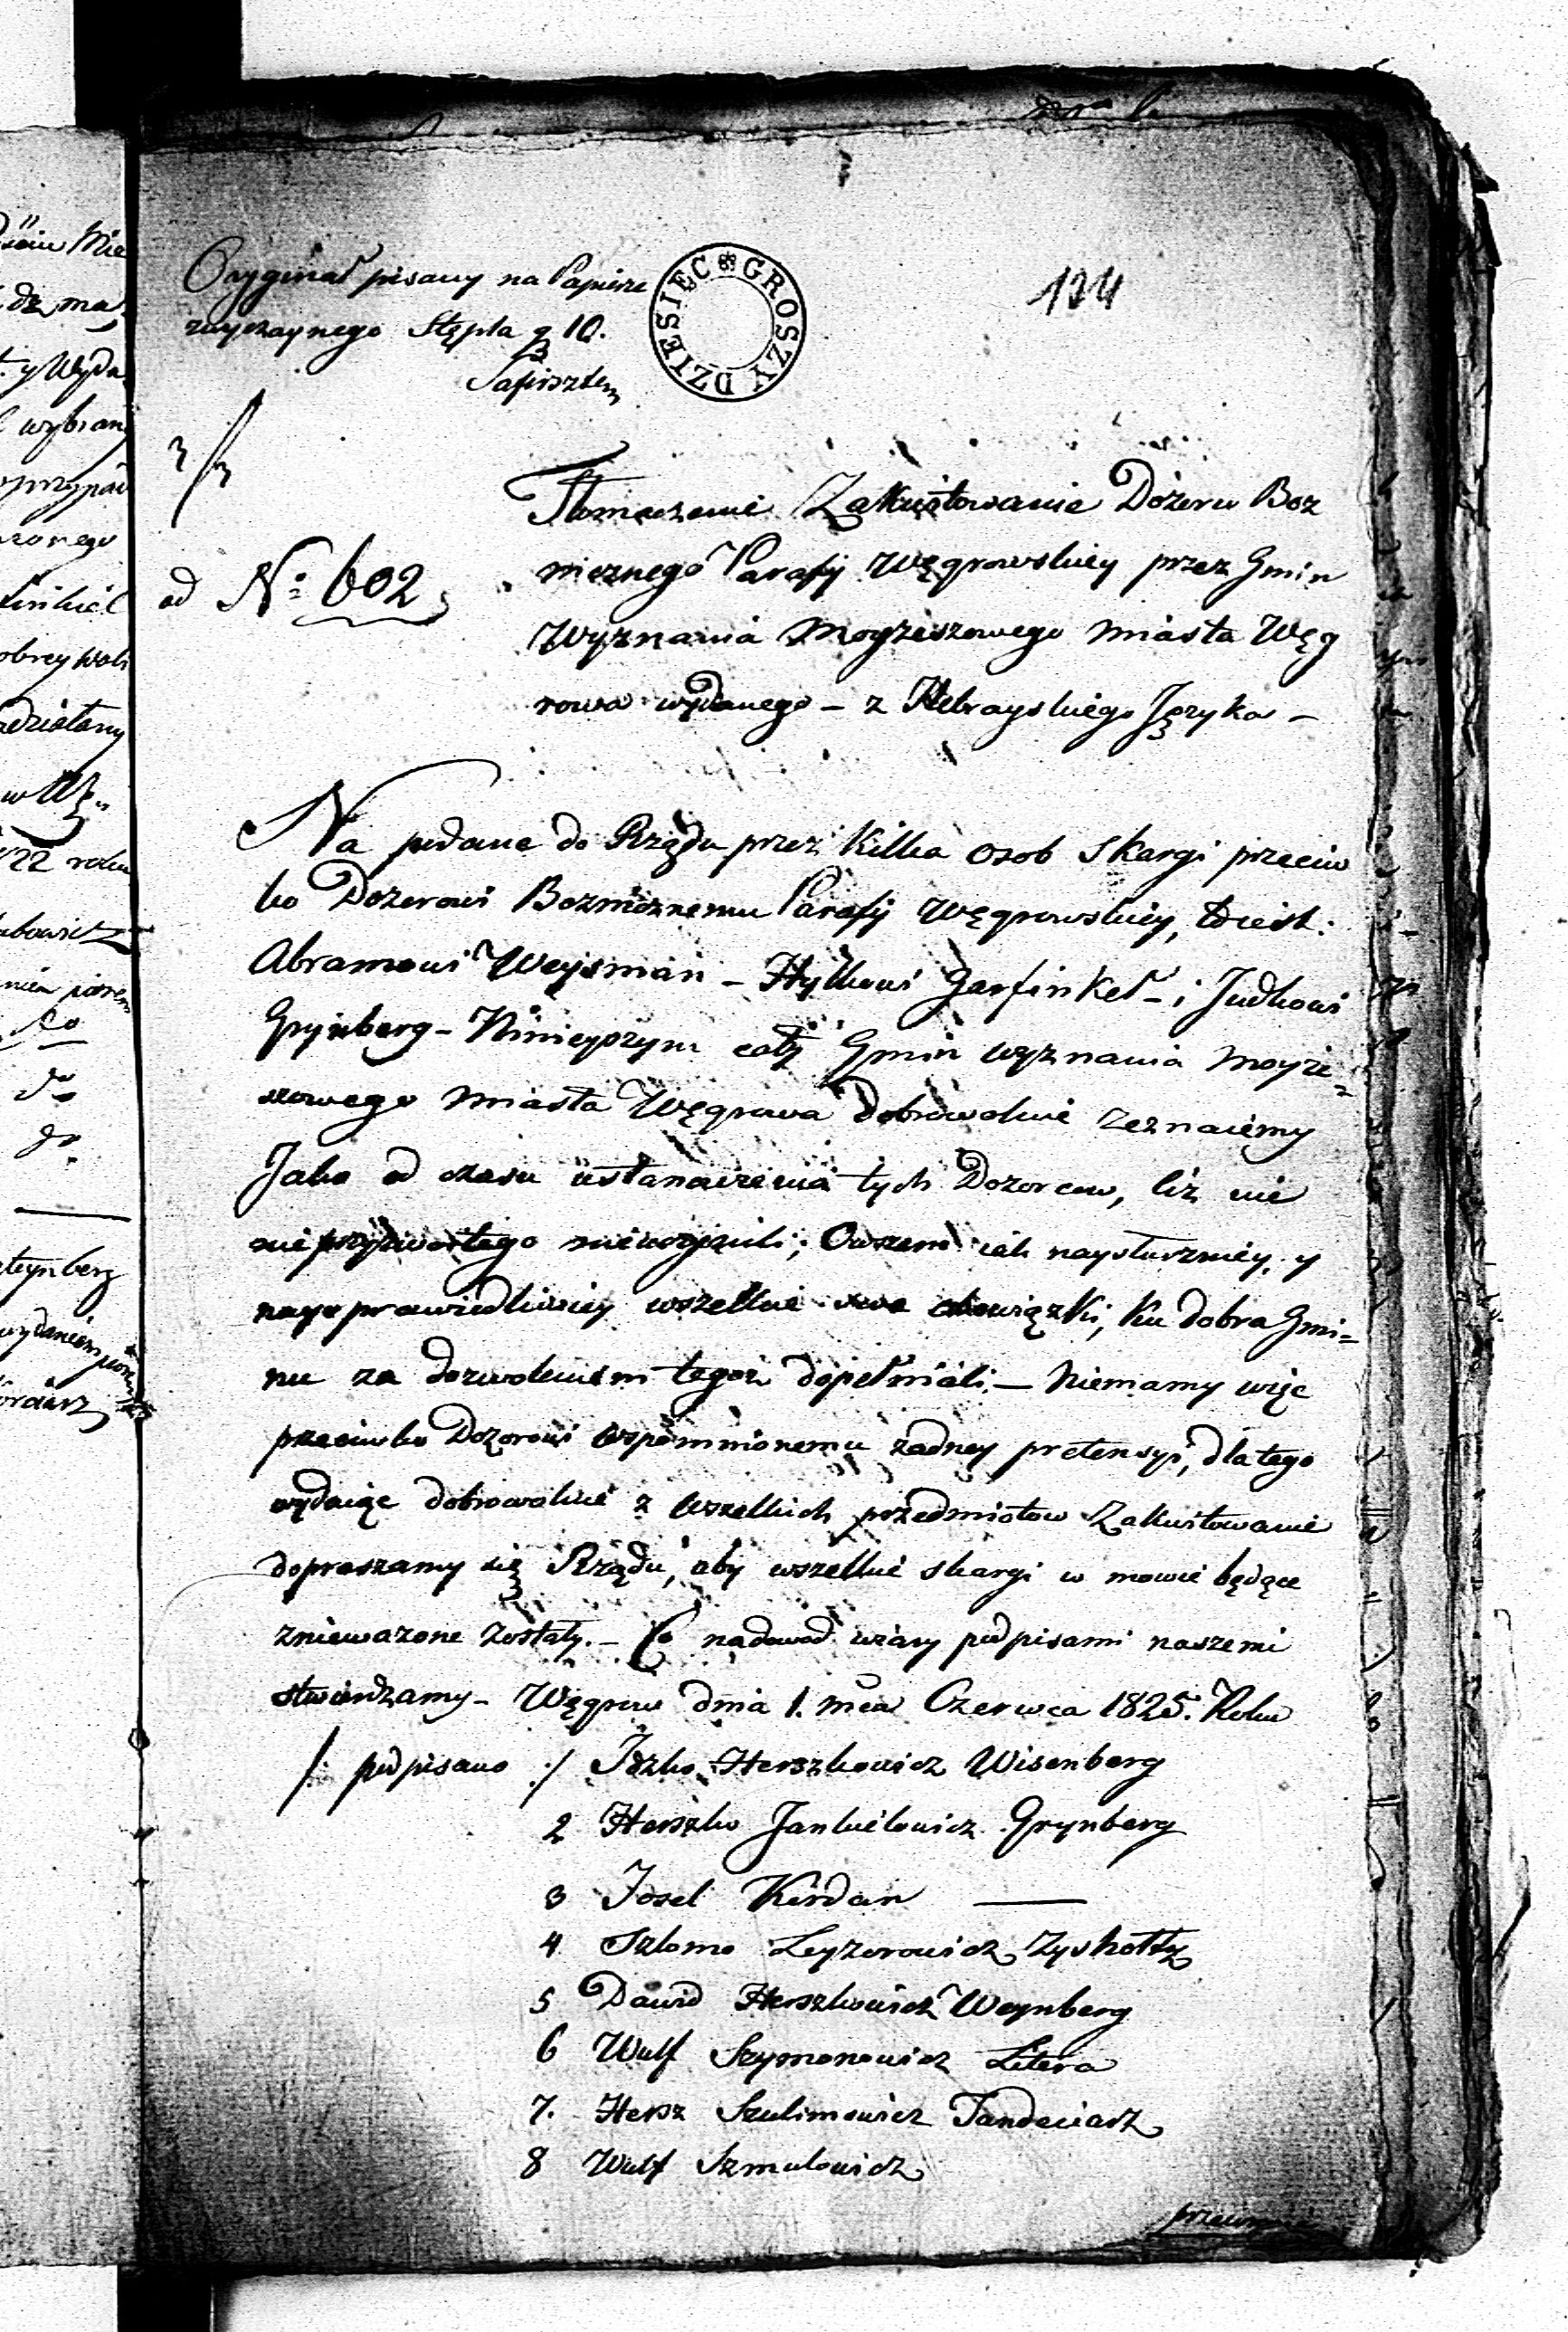 Oryginał pisany na Papierze
zwyczaynego Stępla g 10.
Safirsztem
DZIESIĘC GROSZY
124
od No: 602
Tłomaczenie Zakwitowanie Dozoru Boz
nicznego Parafij Węgrowskiey przez Gmin
Wyznania Moyżeszowego Miasta Węg
rowa wydanego - z Hebrayskiego Języka -
Na podane do Rządu przez kilka osob skargi przeciw
ko Dozorowi Boznicznemu Parafij Węgrowskiey, to iest:
Abramowi Weysman - Hyćkowi Garfinkel - i Judkowi
Grynberg - Ninieyszym cały Gmin wyznania moyże=
szowego Miasta Węgrowa dobrowolnie zeznaiemy
Jako od czasu ustanowienia tych Dozorcow, liż nie
nie tego ; Owszem iak naysłuszniey, y
nayprawiedliwiey wszelkie swe obowiązki, ku dobra Gmi=
nu za dozwoleniem tegoż dopełniali - Niemamy więc
przeciwko Dozorowi wspomnionemu żadney pretensyi, dla tego
wydaiąc dobrowolnie z wszelkich przedmiotow Zakwitowanie
dopraszamy się Rządu, aby wszelkie skargi w mowie będące
znieważone zostały. - Co nadowod wiary podpisami naszemi
stwierdzamy - Węgrow dnia 1. mca Czerwca 1825. Roku
/: podpisano :/ Iczko Herszkowicz Wisenberg
2 Herszko Jankielowicz Grynberg
3 Josel Kordan
4 Szlomo Leyzorowicz Zyskotty
5 Dawid Herszkowicz Weynberg
6 Wulf Szymonowicz Litera
7. Hersz Szulimowicz Tandeciarz
8 Wulf Szmulowicz
22 roku